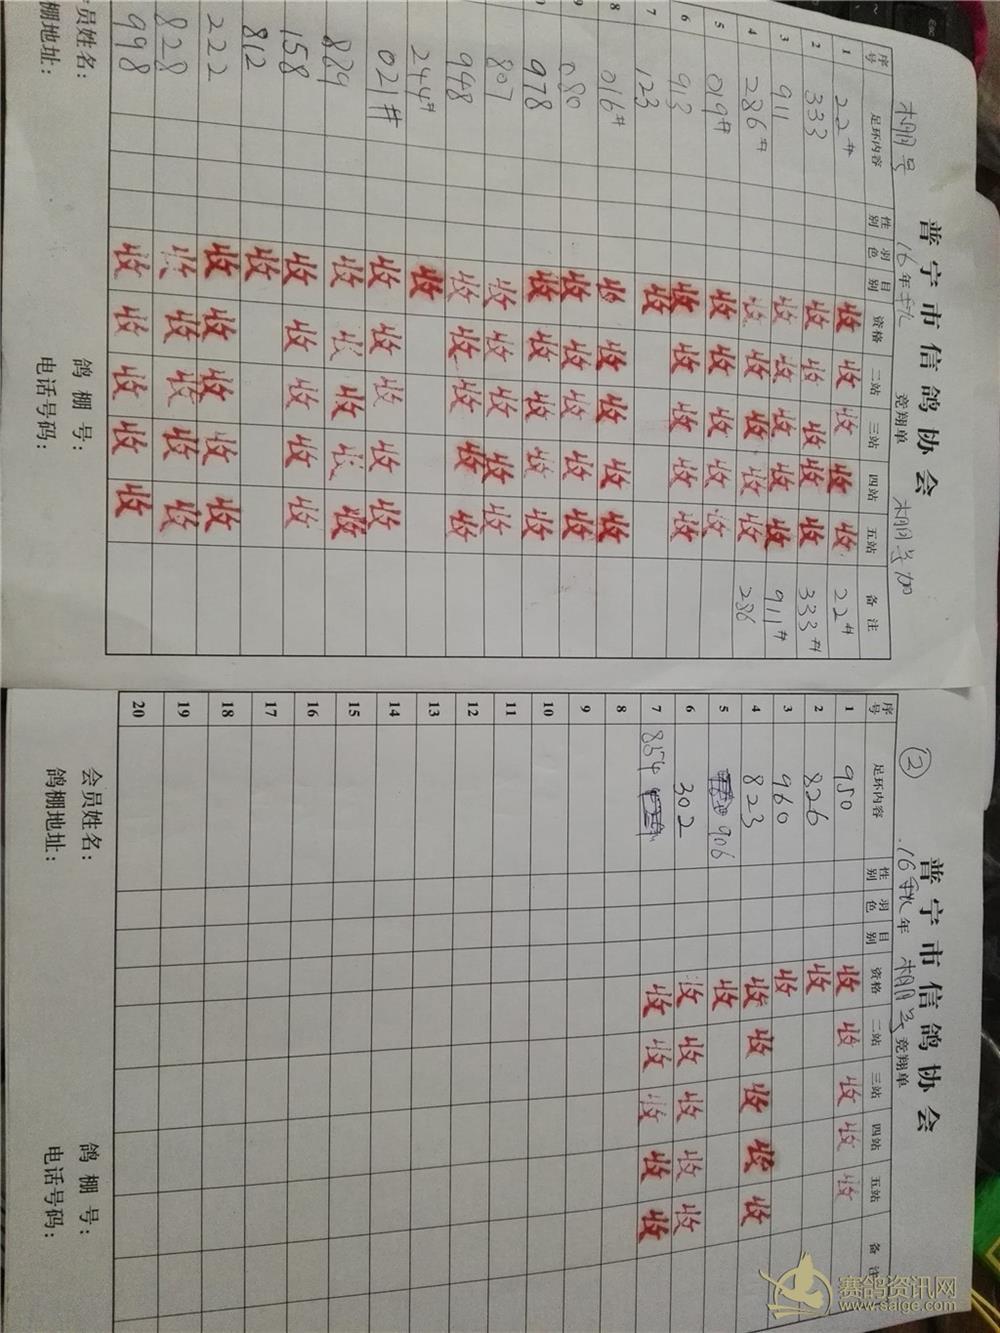 普宁市信鸽协会
棚号 16年秋 竞翔单 棚号加
序号 足环内容 性别 羽色 目别 资格 二站 三站 四站 五站 备注
1 22# 收 收 收 收 收 22#
2 333 收 收 收 收 收 333#
3 911 收 收 收 收 收 911#
4 286# 收 收 收 收 收 286
5 019# 收 收 收 收 收
6 913 收 收 收 收 收
7 123 收
8 016# 收 收 收 收 收
9 080 收 收 收 收 收
978 收 收 收 收 收
807 收 收 收 收 收
948 收 收 收 收 收
244# 收
021# 收 收 收 收 收
889 收 收 收 收 收
158 收 收 收 收 收
812 收
222 收 收 收 收 收
828 收 收 收 收 收
998 收 收 收 收 收
员姓名: 鸽棚号:
棚地址: 电话号码:
②
普宁市信鸽协会
16秋年 棚号 竞翔单
序号 足环内容 性别 羽色 目别 资格 二站 三站 四站 五站 备注
1 950 收 收 收 收 收
2 826 收
3 960 收
4 823 收 收 收 收 收
5 906 收
6 302 收 收 收 收 收
7 854 收 收 收 收 收
8
9
10
11
12
13
14
15
16
17
18
19
20
会员姓名: 鸽棚号:
鸽棚地址: 电话号码:
赛鸽资讯网
www.saige.com